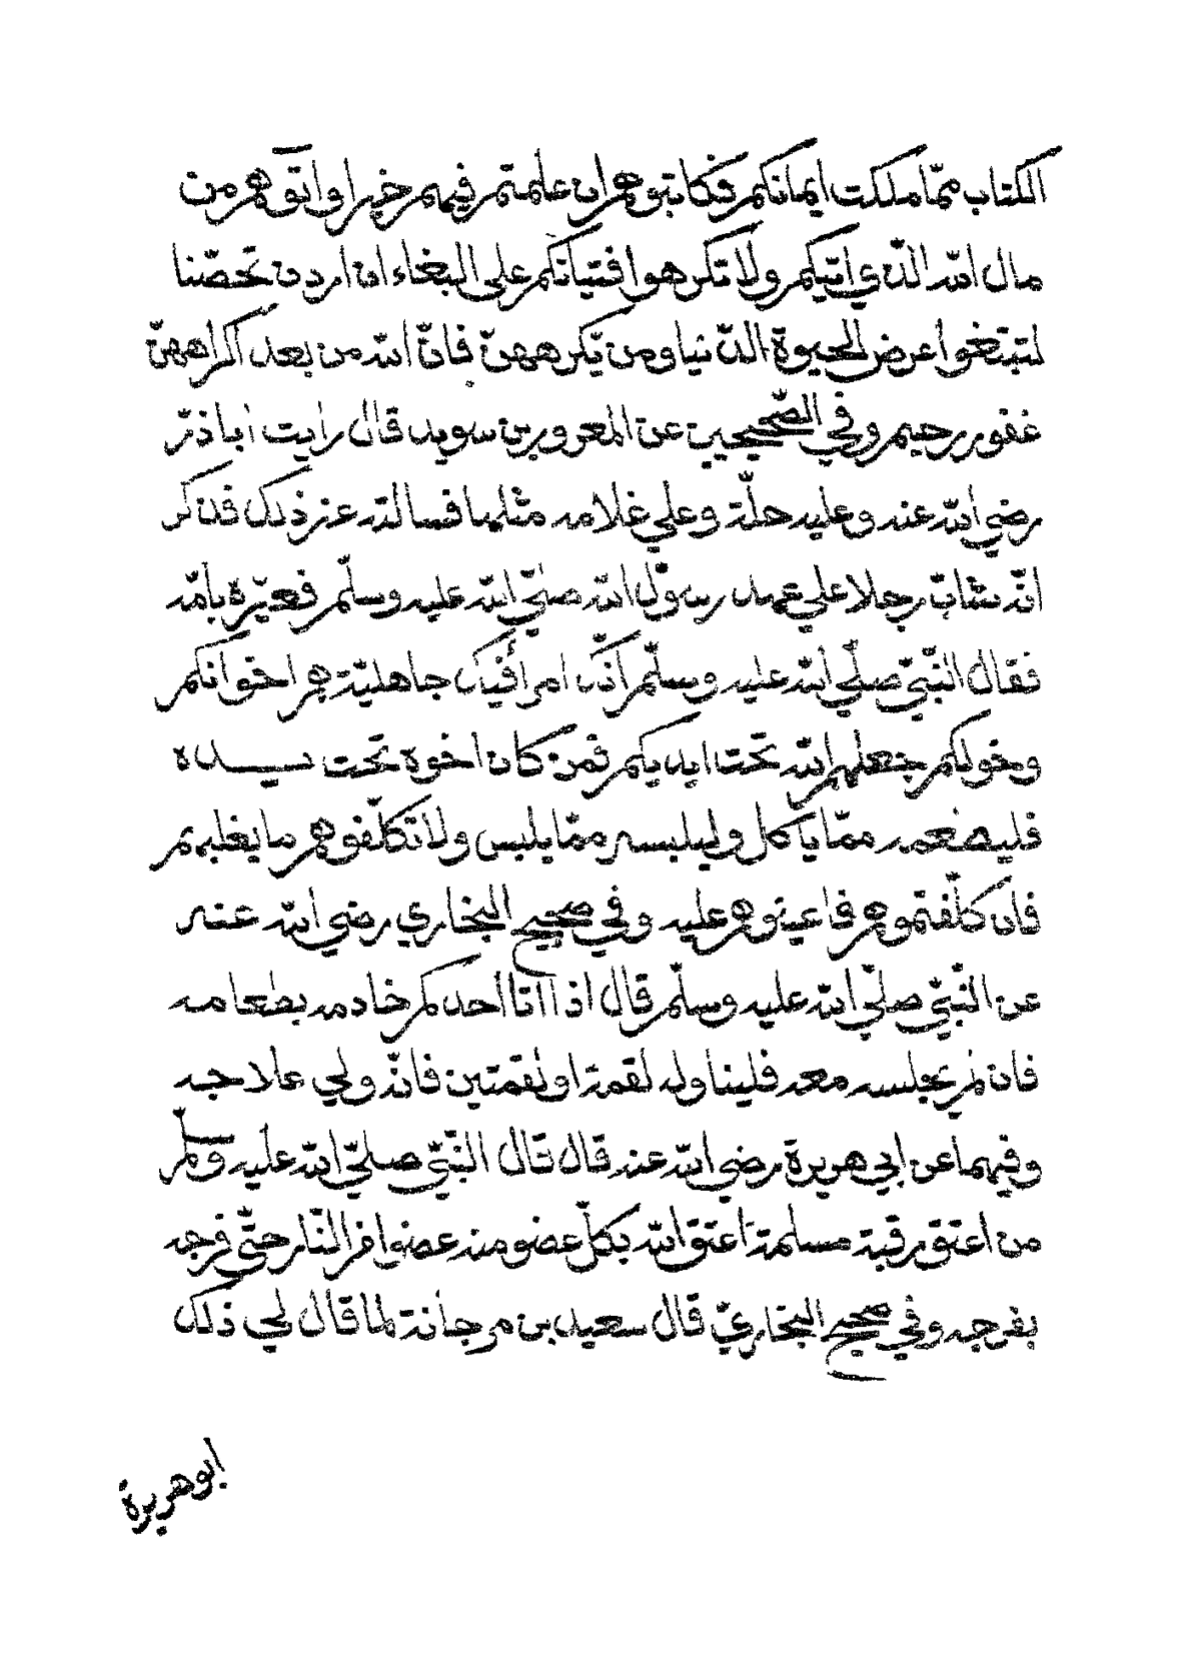 الكتاب ممّا ملكت ايمانكم فكاتبوهم ان علمتم فيهم خيرا واتوهم من
مال الله الذي اتيكم ولا تكرهوا فتياتكم على البغاء ان اردن تحصّنا
لتبتغوا عرض الحيوة الدّنيا ومن يّكرههنّ فانّ الله من بعد اكراههنّ
غفور رحيم وفي الصّحيحين عن المعرور بن سويد قال رايت اباذرّ
رضي الله عنه وعليه حلّة وعلي غلامه مثلها فسالته عن ذلك فذكر
انّه شابّ رجلا علي عهد رسول الله صلّي الله عليه وسلّم فعيّره بامّه
فقال النّبيّ صلّي الله عليه وسلّم انّك امرا فيك جاهليّة هم اخوانكم
وخولكم جعلهم الله تحت ايديكم فمن كان اخوه تحت يده
فليطعمه ممّا ياكل وليلبسه ممّا يلبس ولا تكلّفوهم ما يغلبهم
فان كلّفتموهم فاعينوهم عليه وفي صحيح البخاري رضي الله عنه
عن النّبيّ صلّي الله عليه وسلّم قال اذا اتا احدكم خادمه بطعامه
فان لم يجلسه معه فليناوله لقمة او لقمتين فانّه ولي علاجه
وفيهما عن ابي هريرة رضي الله عنه قال قال النّبيّ صلّي الله عليه وسلّم
من اعتق رقبة مسلمة اعتق الله بكلّ عضو منه عضوا من النّار حتّي فرجه
بفرجه وفي صحيح البخاريّ قال سعيد بن مرجانة لما قال لي ذلك
ابوهريرة